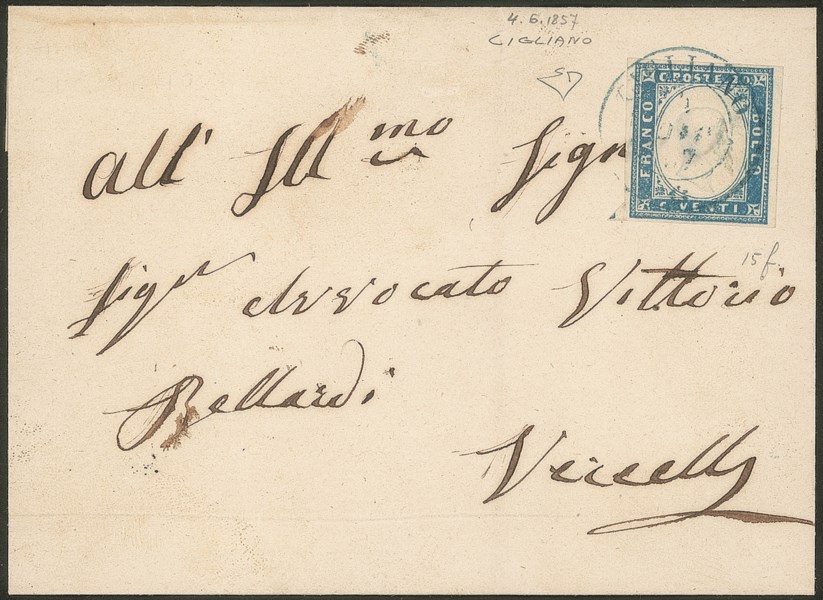 4.6.1857
CIGLIANO
C. POSTE. 20
FRANCO
BOLLO
C. VENTI
All' Ill mo Sign
Sign Avvocato Vittorio
15f
Bellardi
Vercelli